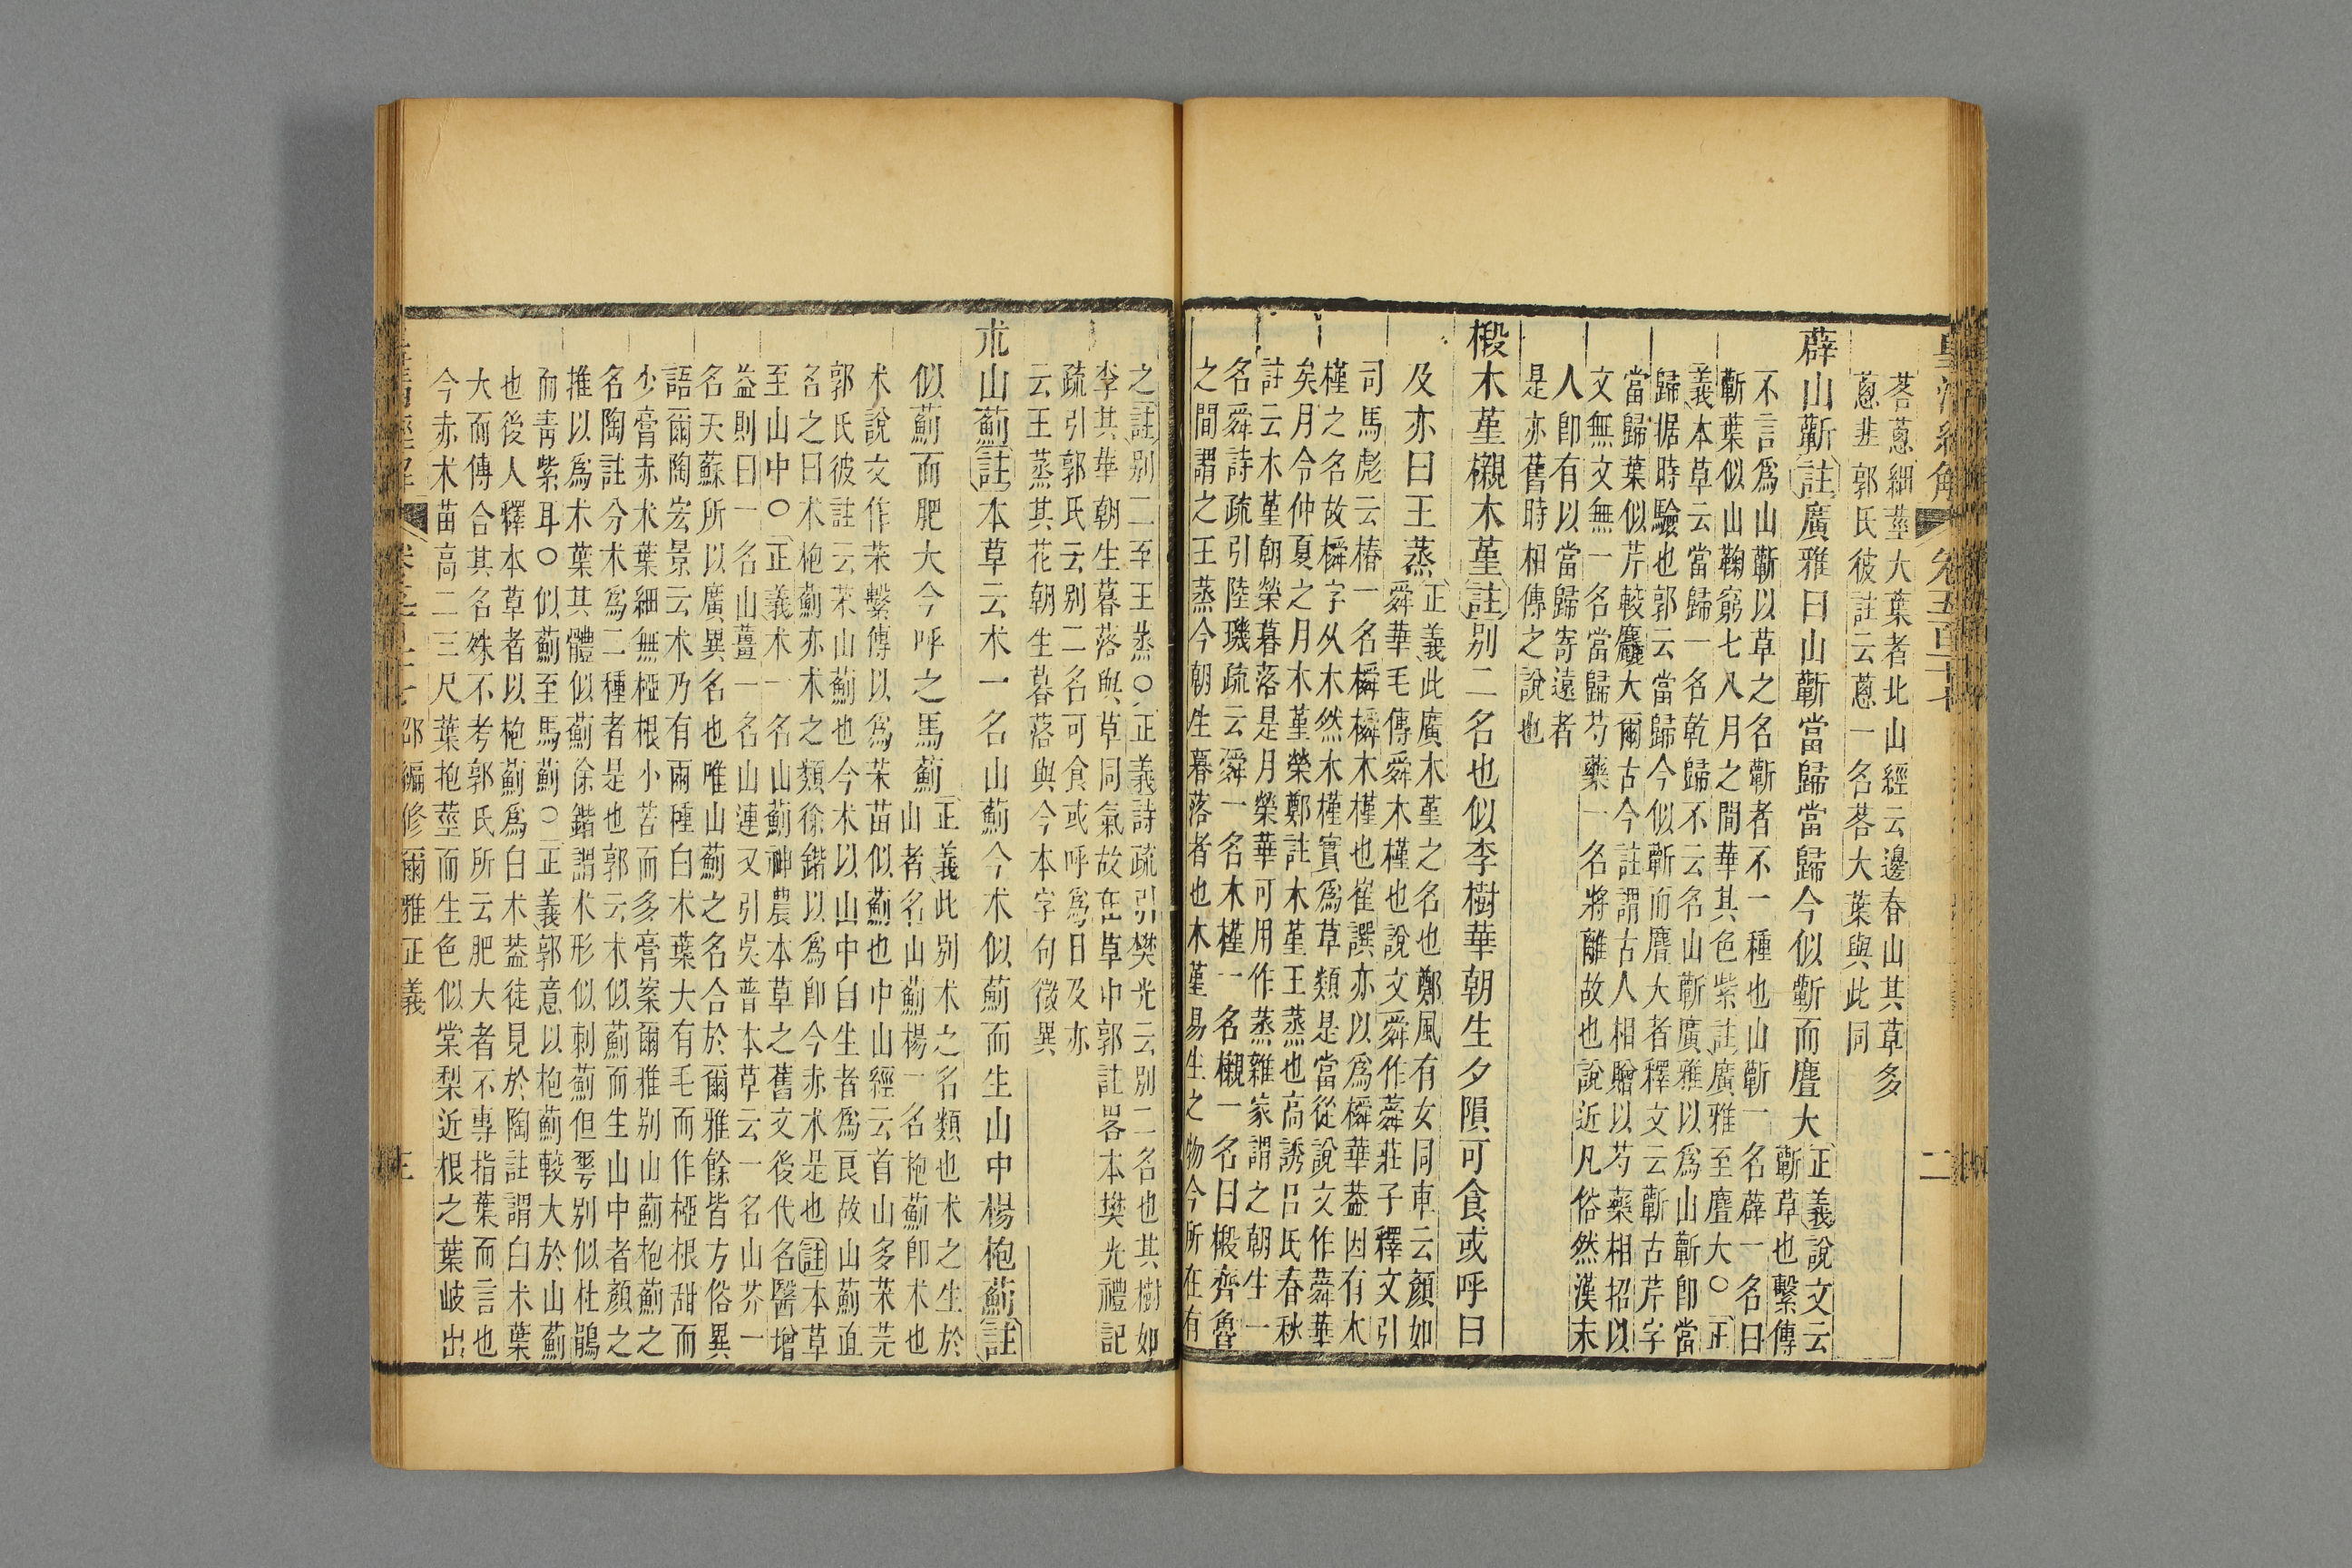 荅蔥細莖大葉者北山經云邊春山其草多
蔥韭郭氏彼註云蔥一名荅大葉與此同
薜山蘄註廣雅曰山蘄當歸當歸今似蘄而麆大
正義說文云
蘄草也繫傳
不言爲山蘄以草之名蘄者不一種也山蘄一名薜一名曰
蘄葉似山鞠窮七八月之間華其色紫註廣雅至麆大〇正
義本草云當歸一名乾歸不云名山蘄廣雅以爲山蘄卽當
歸据時驗也郭云當歸今似蘄而麆大者釋文云蘄古芹字
當歸葉似芹較麤大爾古今註謂古人相贈以芍藥相招以
文無文無一名當歸芍藥一名將離故也說近凡俗然漢末
人卽有以當歸寄遠者
是亦舊時相傳之說也
椴木堇櫬木堇註別二名也似李樹華朝生夕隕可食或呼曰
及亦曰王蒸
正義此廣木堇之名也鄭風有女同車云顏如
舜華毛傳舜木槿也說文舜作蕣莊子釋文引
司馬彪云椿一名橓橓木槿也崔譔亦以爲橓華葢因有木
槿之名故橓字从木然木槿實爲草類是當從說文作蕣華
矣月令仲夏之月木堇榮鄭註木堇王蒸也高誘呂氏春秋
註云木堇朝榮暮落是月榮華可用作蒸雜家謂之朝生一
名舜詩疏引陸璣疏云舜一名木槿一名櫬一名曰椴齊魯
之間謂之王蒸今朝生暮落者也木堇易生之物今所在有
之註別二至王蒸〇正義詩疏引樊光云別二名也其樹如
李其華朝生暮落與草同氣故在草中郭註畧本樊光禮記
疏引郭氏云別二名可食或呼爲日及亦
云王蒸其花朝生暮落與今本字句微異
朮山薊註本草云朮一名山薊今朮似薊而生山中楊枹薊註
似薊而肥大今呼之馬薊
正義此別朮之名類也朮之生於
山者名山薊楊一名枹薊卽朮也
朮說文作茱繫傳以爲茱苗似薊也中山經云首山多茱芫
郭氏彼註云茱山薊也今朮以山中自生者爲良故山薊直
名之曰朮枹薊亦朮之類徐鍇以爲卽今赤朮是也註本草
至山中〇正義朮一名山薊神農本草之舊文後代名醫增
益則曰一名山薑一名山連又引吳普本草云一名山芥一
名天蘇所以廣異名也唯山薊之名合於爾雅餘皆方俗異
語爾陶宏景云朮乃有兩種白朮葉大有毛而作椏根甜而
少膏赤朮葉細無椏根小苦而多膏案爾雅別山薊枹薊之
名陶註分朮爲二種者是也郭云朮似薊而生山中者顏之
推以爲朮葉其體似薊徐鍇謂朮形似刺薊但粤別似杜鵑
而靑紫耳〇似薊至馬薊〇正義郭意以枹薊較大於山薊
也後人釋本草者以枹薊爲白朮葢徒見於陶註謂白朮葉
大而傳合其名殊不考郭氏所云肥大者不專指葉而言也
今赤朮苗高二三尺葉抱莖而生色似棠梨近根之葉岐出
邵編修爾雅正義